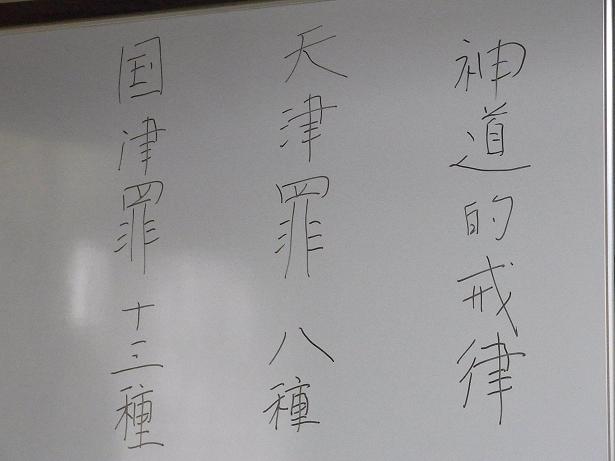 神道的戒律
天津罪 八種
国津罪 十三種